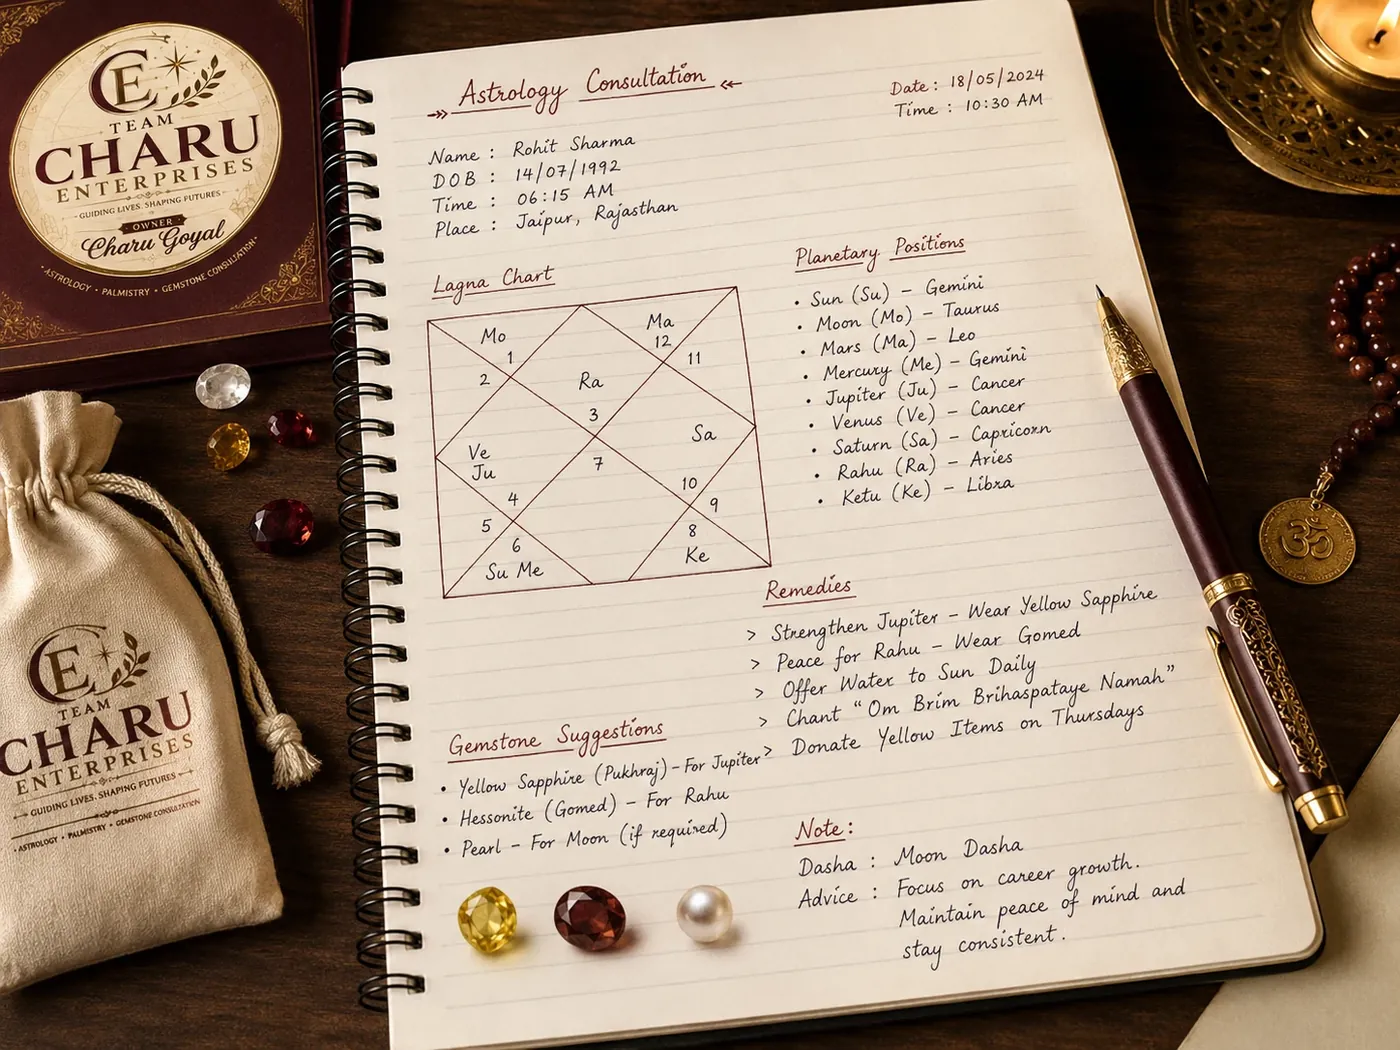 CE
TEAM
CHARU
ENTERPRISES
GUIDING LIVES. SHAPING FUTURES.
OWNER
Charu Goyal
• ASTROLOGY • PALMISTRY • GEMSTONE CONSULTATION •
Astrology Consultation
Date : 18/05/2024
Time : 10:30 AM
Name : Rohit Sharma
DOB : 14/07/1992
Time : 06:15 AM
Place : Jaipur, Rajasthan
Lagna Chart
Mo
1
2
Ma
12
11
Ra
3
Sa
Ve
Ju
7
4
10
5
9
6
8
Su Me
Ke
Planetary Positions
• Sun (Su) – Gemini
• Moon (Mo) – Taurus
• Mars (Ma) – Leo
• Mercury (Me) – Gemini
• Jupiter (Ju) – Cancer
• Venus (Ve) – Cancer
• Saturn (Sa) – Capricorn
• Rahu (Ra) – Aries
• Ketu (Ke) – Libra
Remedies
> Strengthen Jupiter – Wear Yellow Sapphire
> Peace for Rahu – Wear Gomed
> Offer Water to Sun Daily
> Chant "Om Brim Brihaspataye Namah"
> Donate Yellow Items on Thursdays
Gemstone Suggestions
• Yellow Sapphire (Pukhraj) – For Jupiter
• Hessonite (Gomed) – For Rahu
• Pearl – For Moon (if required)
Note :
Dasha : Moon Dasha
Advice : Focus on career growth.
Maintain peace of mind and
stay consistent.
CE
TEAM
CHARU
ENTERPRISES
GUIDING LIVES. SHAPING FUTURES
• ASTROLOGY • PALMISTRY • GEMSTONE CONSULTATION
ॐ